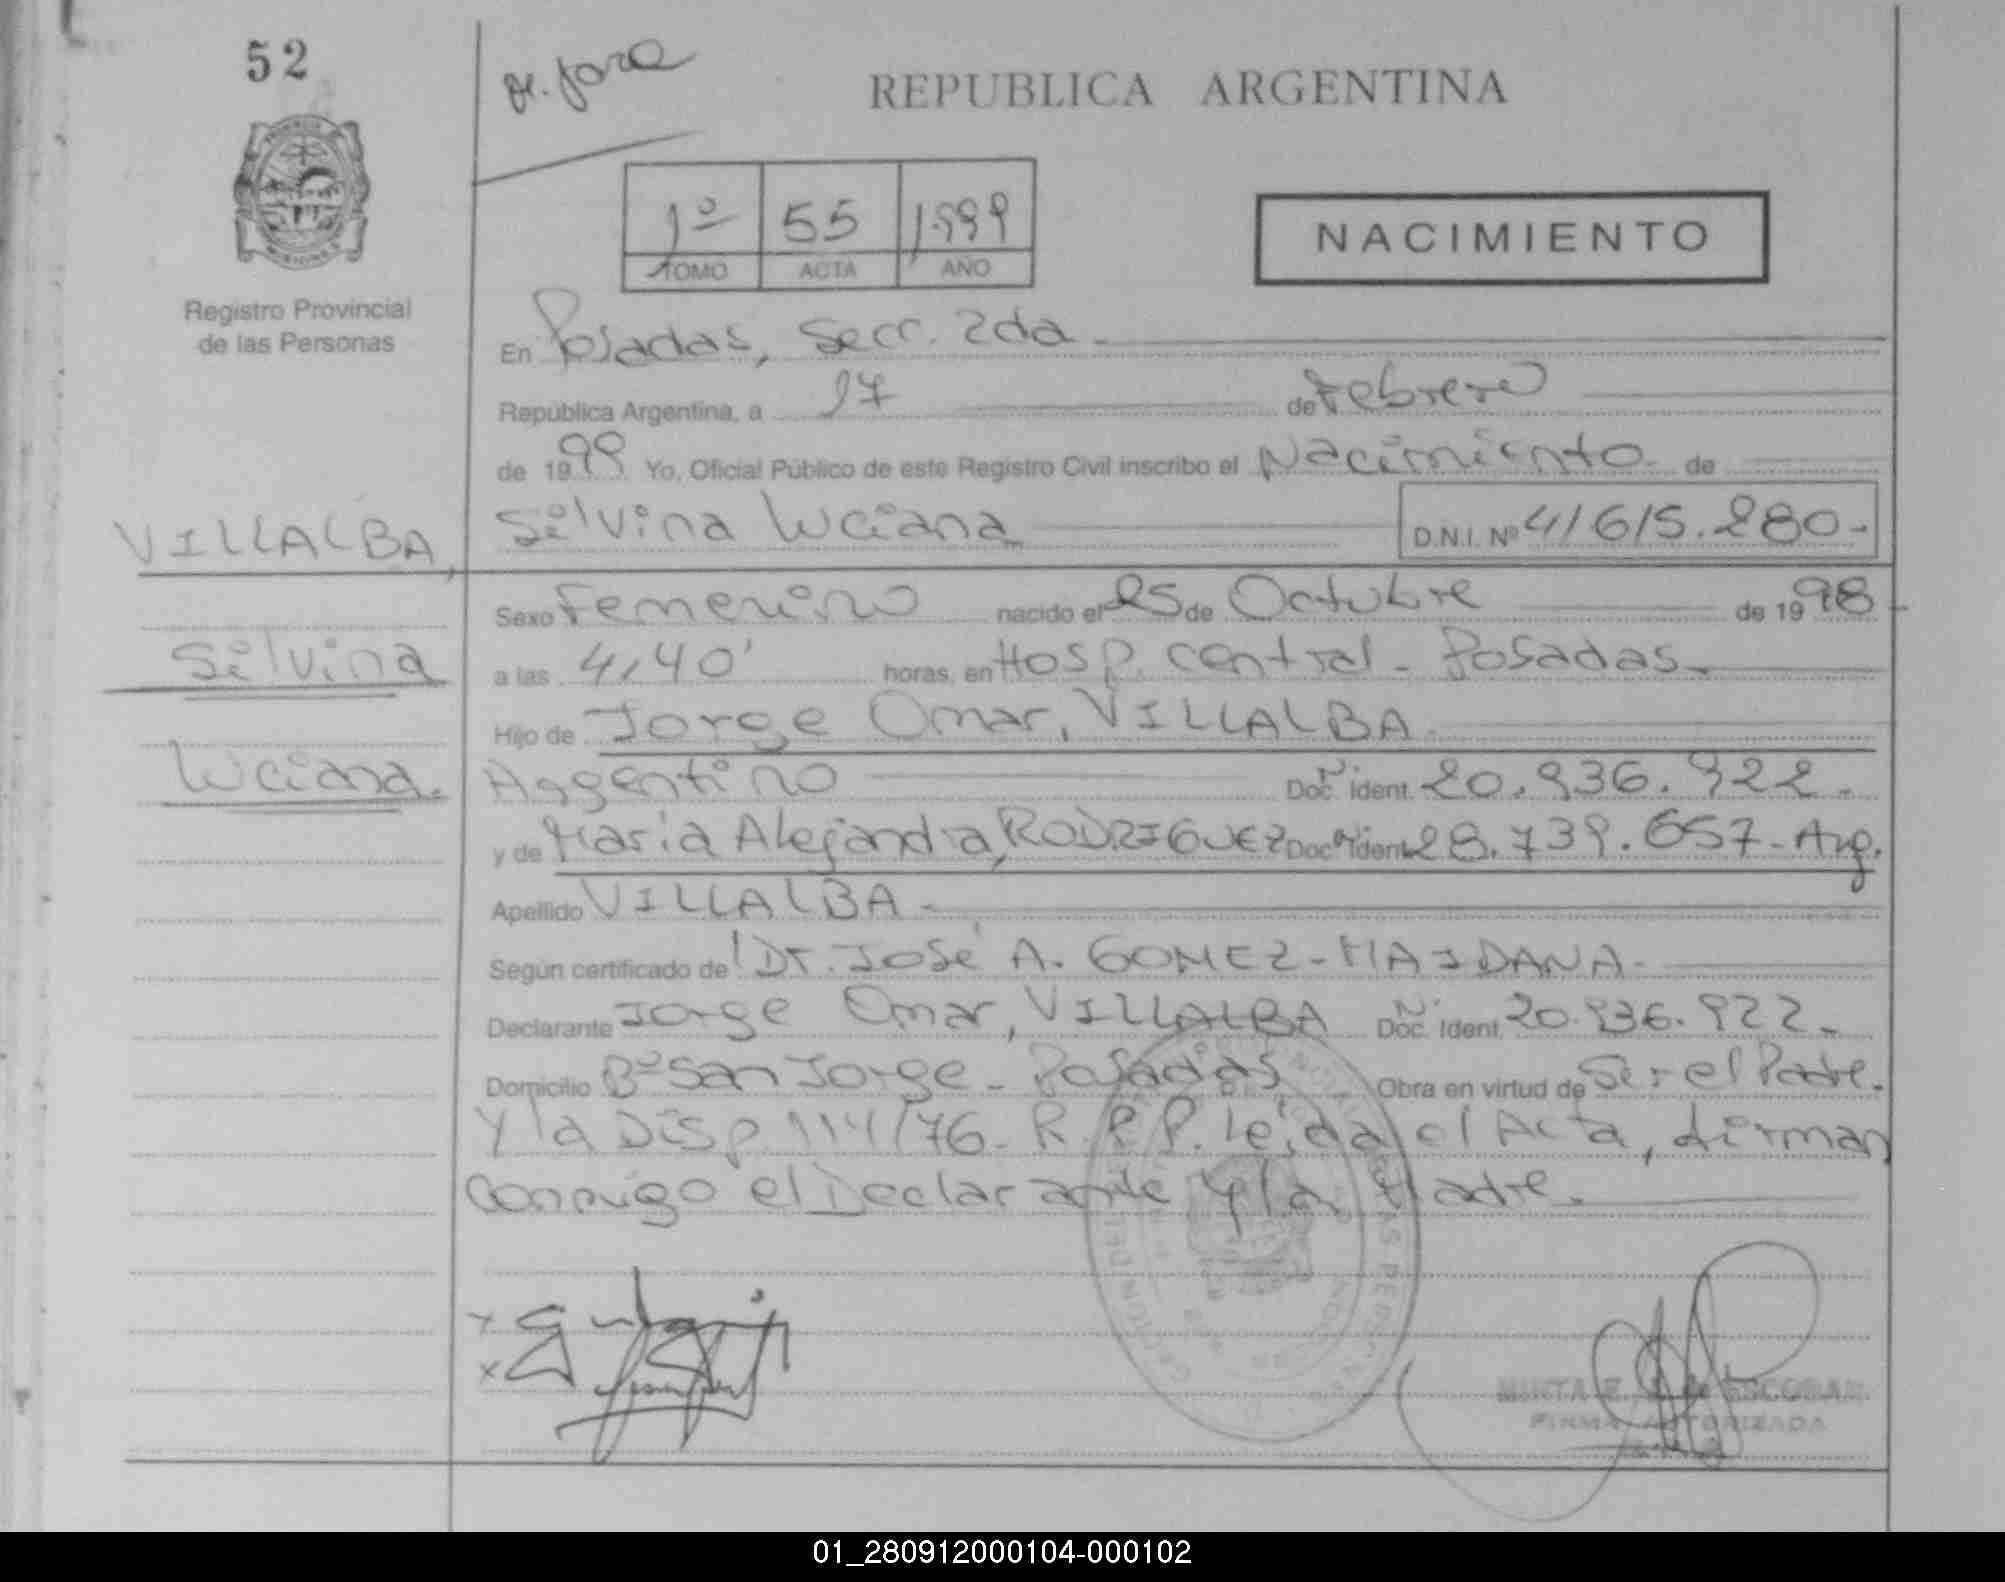 52
REPUBLICA ARGENTINA
1º 55 1.999
TOMO ACTA AÑO
NACIMIENTO
Registro Provincial
de las Personas
En Posadas, Secc. 2da
República Argentina, a 17 de Febrero
de 1999 Yo, Oficial Público de este Registro Civil inscribo el Nacimiento de
VILLALBA, Silvina Luciana D.N.I. Nº 41615.280-
Sexo Femenino nacido el 25 de Octubre de 1998
Silvina a las 4,40' horas, en Hosp. Central - Posadas
Hijo de Jorge Omar, VILLALBA
Luciana. Argentino Doc. Ident. 20.936.922.
y de Maria Alejandra, RODRIGUEZ Doc. Ident. 28.739.657 - Arg.
Apellido VILLALBA -
Según certificado del Dr. José A. GOMEZ - MAIDANA -
Declarante Jorge Omar, VILLALBA Doc. Ident. 20.936.922.
Domicilio Bº San Jorge - Posadas Obra en virtud de Ser el Padre.
Y la Disp. 114/76 - R.P.P. Leida el Acta, firman
conmigo el Declarante y la Madre.
ESCOBAR
FIRMA AUTORIZADA
01_280912000104-000102